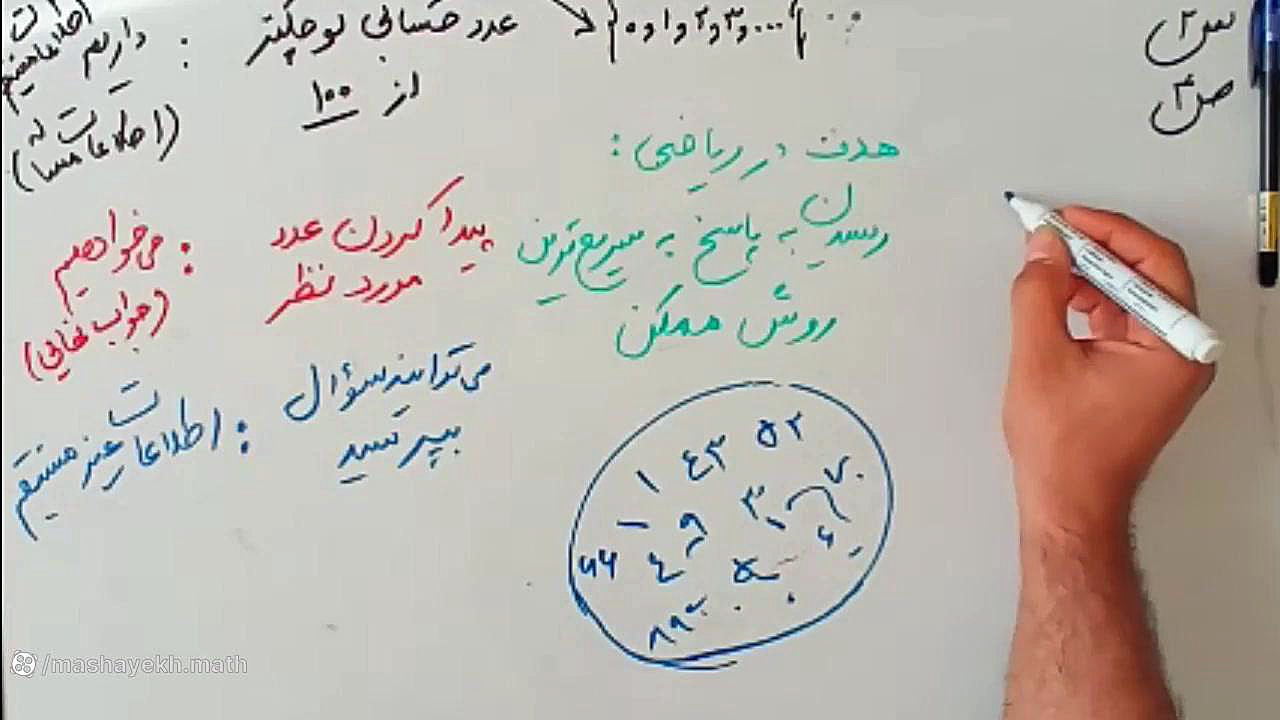 س ۲
ص ۳
{۰ و ۱ و ۲ و ۳ و ...}
عدد حسابی کوچکتر
از ۱۰۰
داریم :
اطلاعات مستقیم
(اطلاعات مسئله)
هدف در ریاضی :
رسیدن به پاسخ به سریع‌ترین
روش ممکن
پیدا کردن عدد
مورد نظر
می‌خواهیم :
(جواب نهایی)
می‌توانید سؤال
بپرسید
اطلاعات غیر مستقیم :
۵۲
۴۳
۱
۷۰
۳۰
۹
۴
۶۶
۸۹
/mashayekh.math